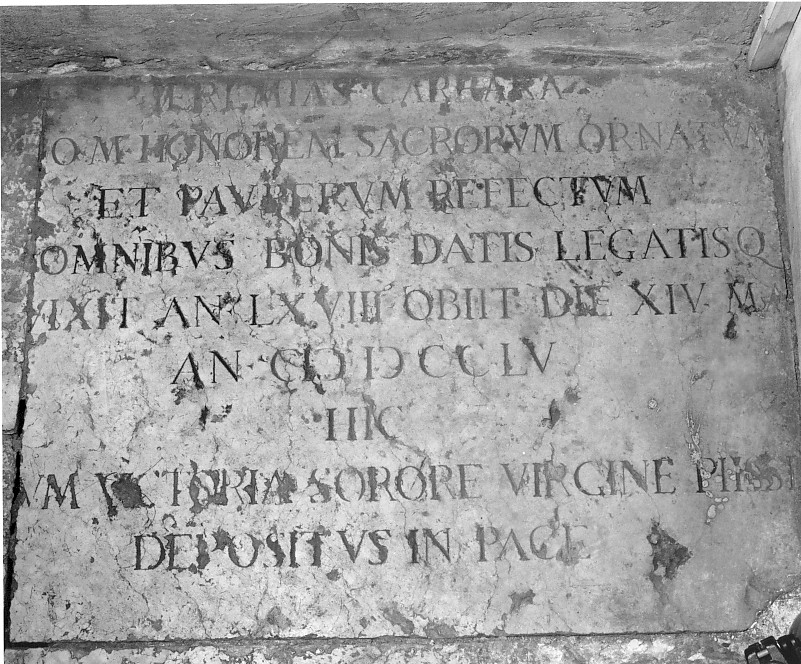 IEREMIAS CARRARA
O M HONOREM SACRORVM ORNATVM
ET PAVPERVM REFECTVM
OMNIBVS BONIS DATIS LEGATISQ
VIXIT AN LXVIII OBIIT DIE XIV MA
AN CIƆ IƆ CCLV
HIC
VM VICTORIA SORORE VIRGINE PIISSI
DEPOSITVS IN PACE